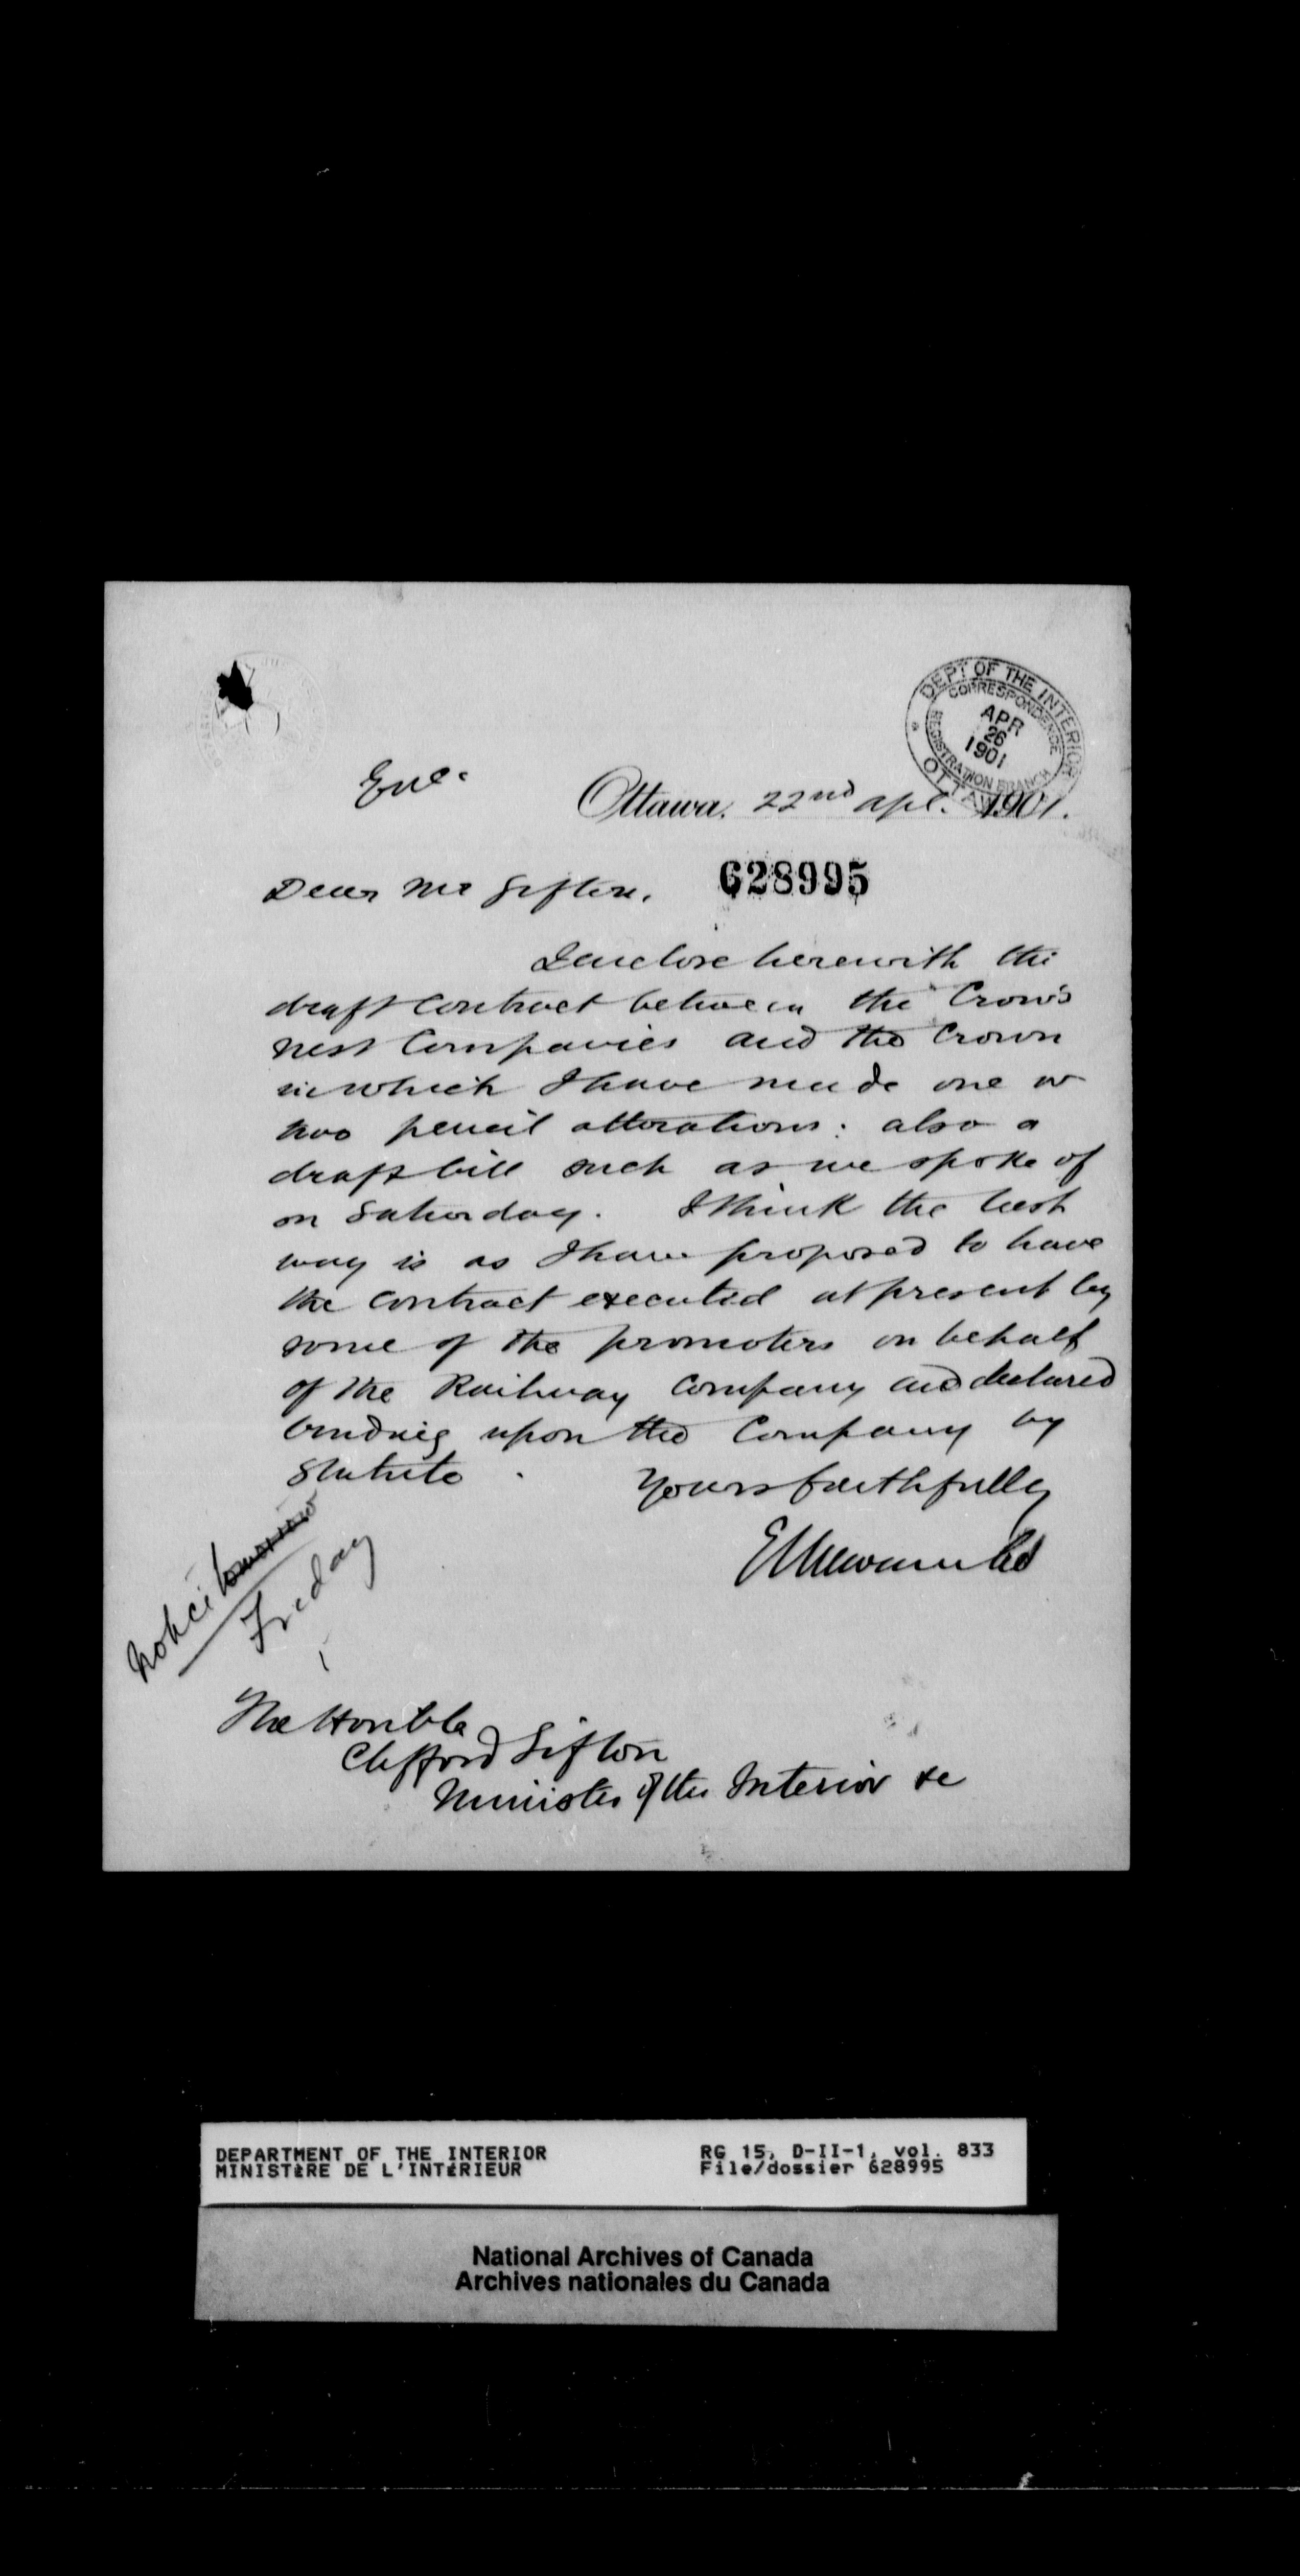 DEPT OF THE INTERIOR
CORRESPONDENCE
APR
26
1901
REGISTRATION BRANCH
OTTAWA
Enc.
Ottawa, 22nd Apl. 1901.
Dear Mr Sifton, 628995
I enclose herewith the
draft contract between the Crow's
nest Companies and the Crown
in which I have made one or
two pencil alterations: also a
draft bill such as we spoke of
on Saturday. I think the best
way is as I have proposed to have
the contract executed at present by
some of the promoters on behalf
of the Railway Company and declared
binding upon the Company by
Statute.
Yours faithfully
Notice tomorrow
Friday
The Honble
Clifford Sifton
Minister of the Interior &c
DEPARTMENT OF THE INTERIOR RG 15, D-II-1, vol. 833
MINISTÈRE DE L'INTÉRIEUR File/dossier 628995
National Archives of Canada
Archives nationales du Canada